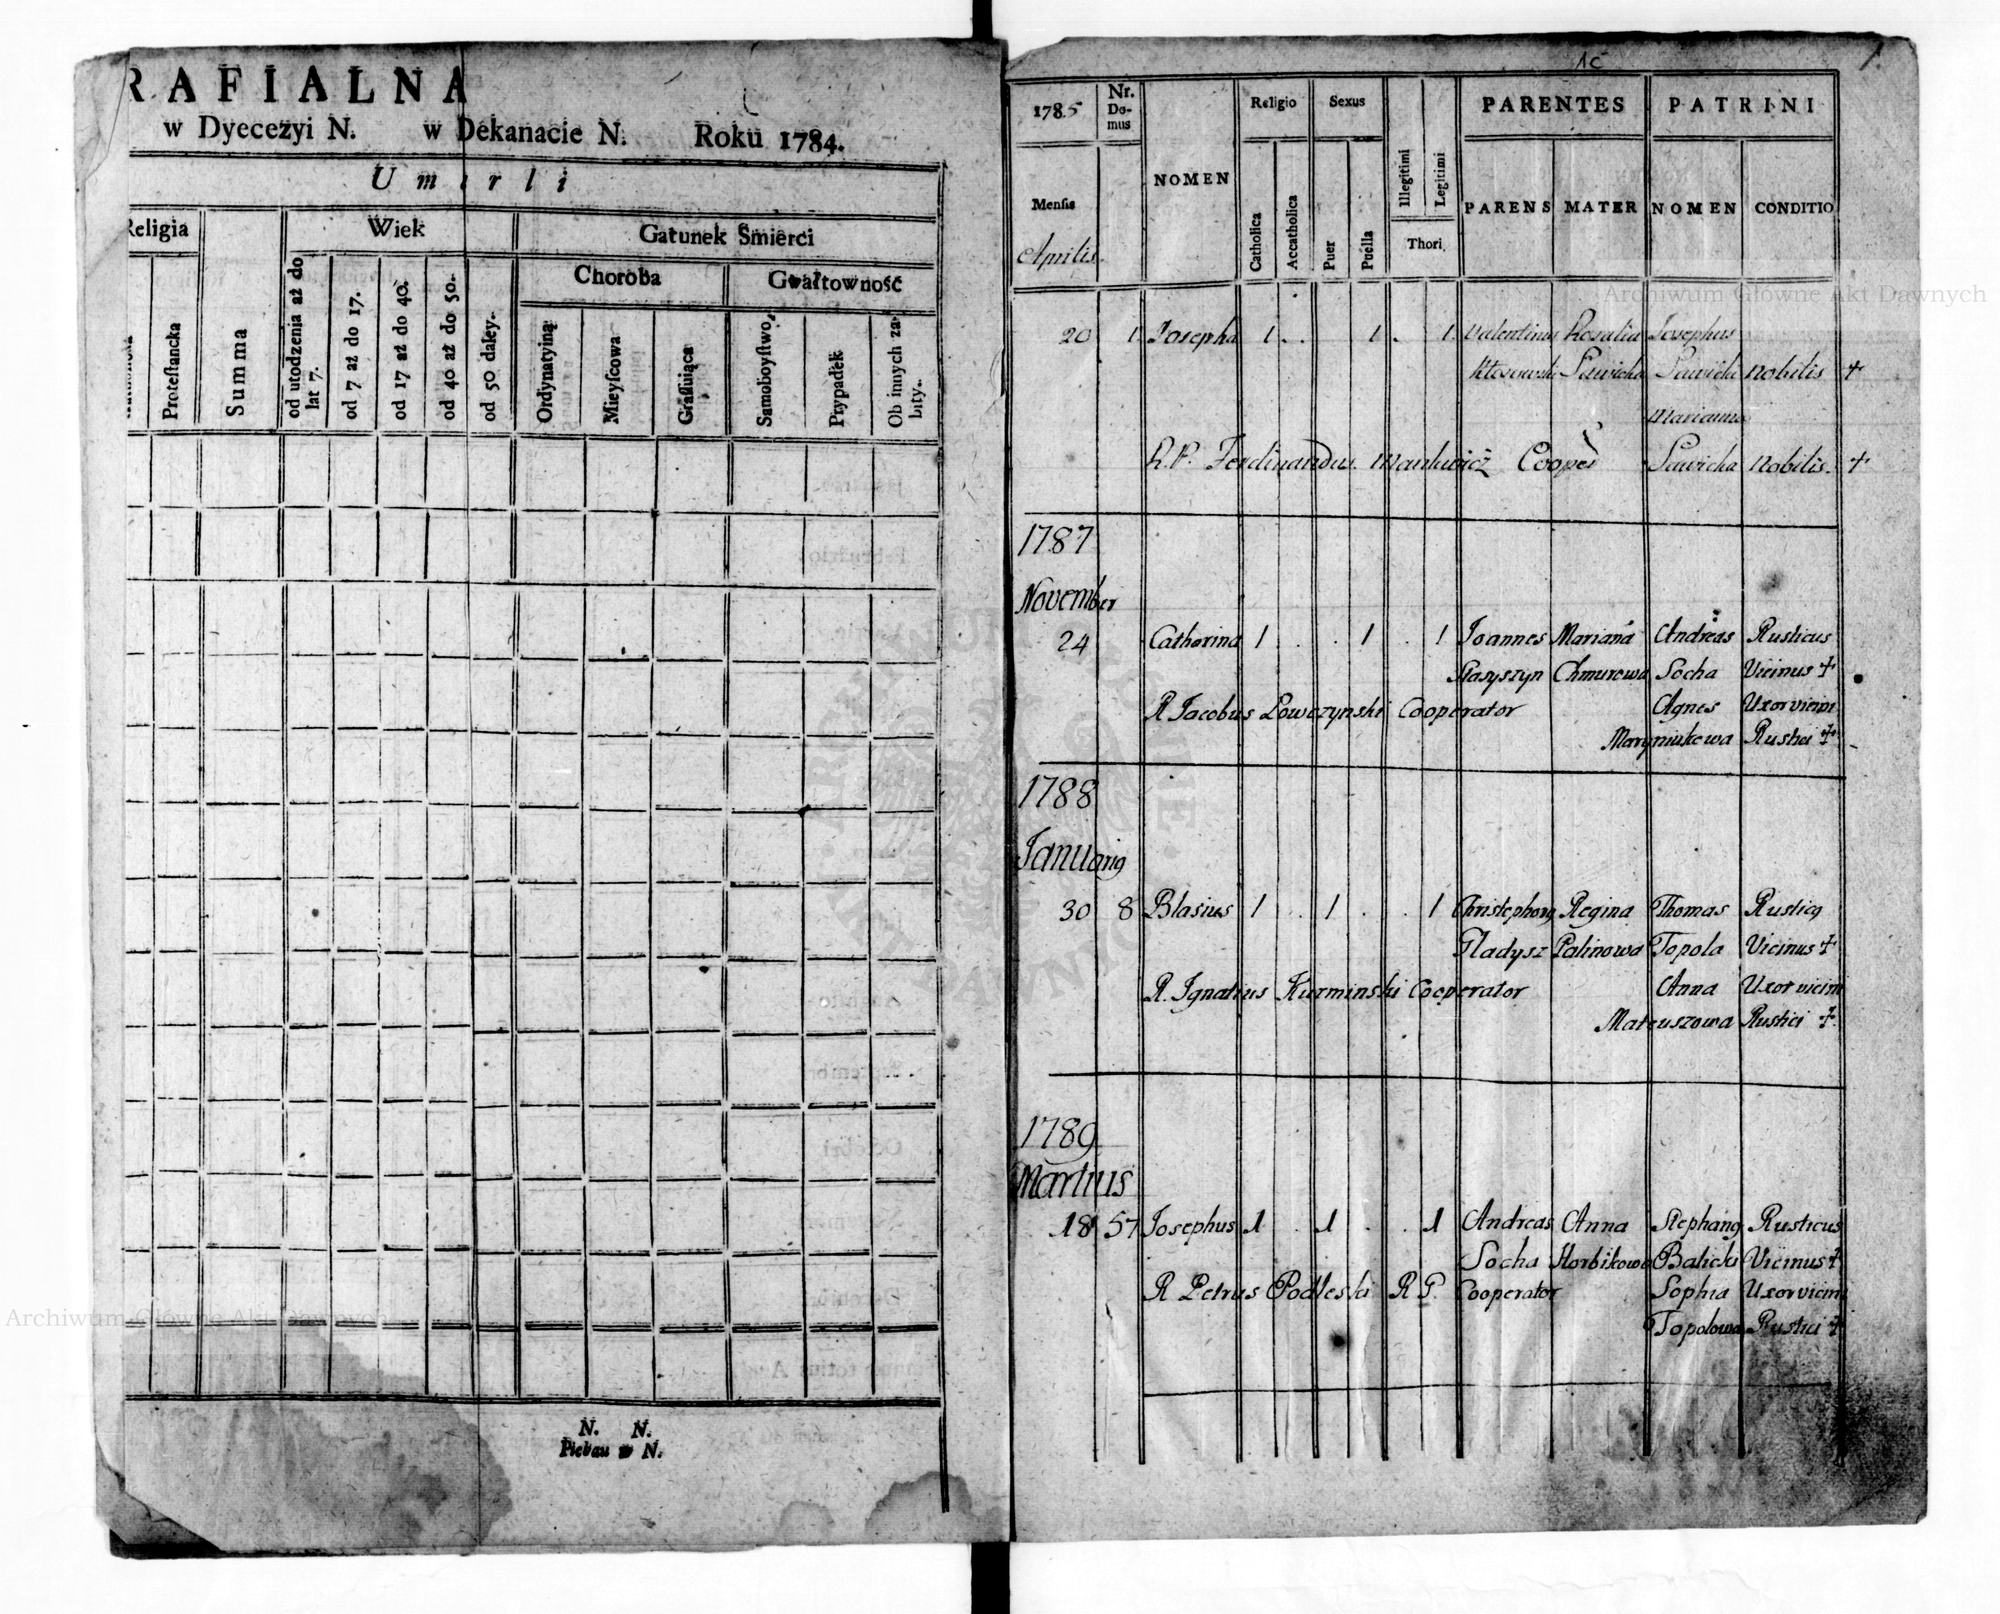 RAFIALNA
w Dyecezyi N. w Dekanacie N. Roku 1784.
Umarli
Religia
Wiek
Gatunek Smierci
Choroba
Gwałtowność
Proteſtancka
Summa
od urodzenia aż do lat 7.
od 7 aż do 17.
od 17 aż do 40.
od 40 aż do 50.
od 50 daley.
Ordynatyiną
Mieyſcowa
Graſſuiąca
Samoboyſtwo
Przypadek
Ob innych zabity.
N. N.
Pleban w N.
1785 Nr. Domus NOMEN Religio Sexus PARENTES PATRINI
Menſis
Aprilis
Catholica Accatholica Puer Puella Illegitimi Legitimi Thori PARENS MATER NOMEN CONDITIO
20 1 Josepha 1 . . 1 . 1 Valentinus Rosalia Josephus
Sawicka Sawicki Nobilis +
Marianna
R. P. Ferdinandus Coope Sawicka Nobilis. +
1787
November
24 Catharina 1 . . 1 . 1 Joannes Mariana Andreas Rusticus
Stasyszyn Chmurowa Socha Vicinus +
R Jacobus Lowczynski Cooperator Agnes Uxor vicini
Maryniukowa Rustici +
1788
Januarig
30 8 Blasius 1 . 1 . . 1 Christophorg Regina Thomas Rusticg
Gladysz Palinowa Topola Vicinus +
R. Ignatius Kurminski Cooperator Anna Uxor vicini
Mateuszowa Rustici +
1789
Martius
18 57 Josephus 1 . 1 . . 1 Andreas Anna Stephang Rusticus
Socha Horbikowa Balicki Vicinus +
R Petrus Podleski R P. Cooperator Sophia Uxor vicini
Topolowa Rustici +
Archiwum Główne Akt Dawnych
Archiwum Główne Akt Dawnych